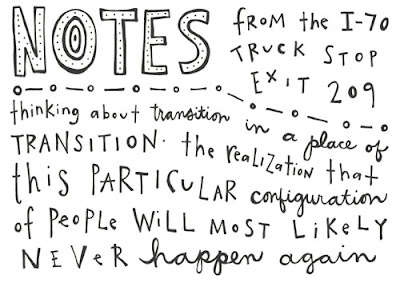 NOTES from the I-70
TRUCK STOP
EXIT 209
thinking about transition in a place of
TRANSITION. the reaLIZATION that
this PARTICULAR configuration
of PeoPLe WiLL MoST LiKeLY
NeVeR happen again